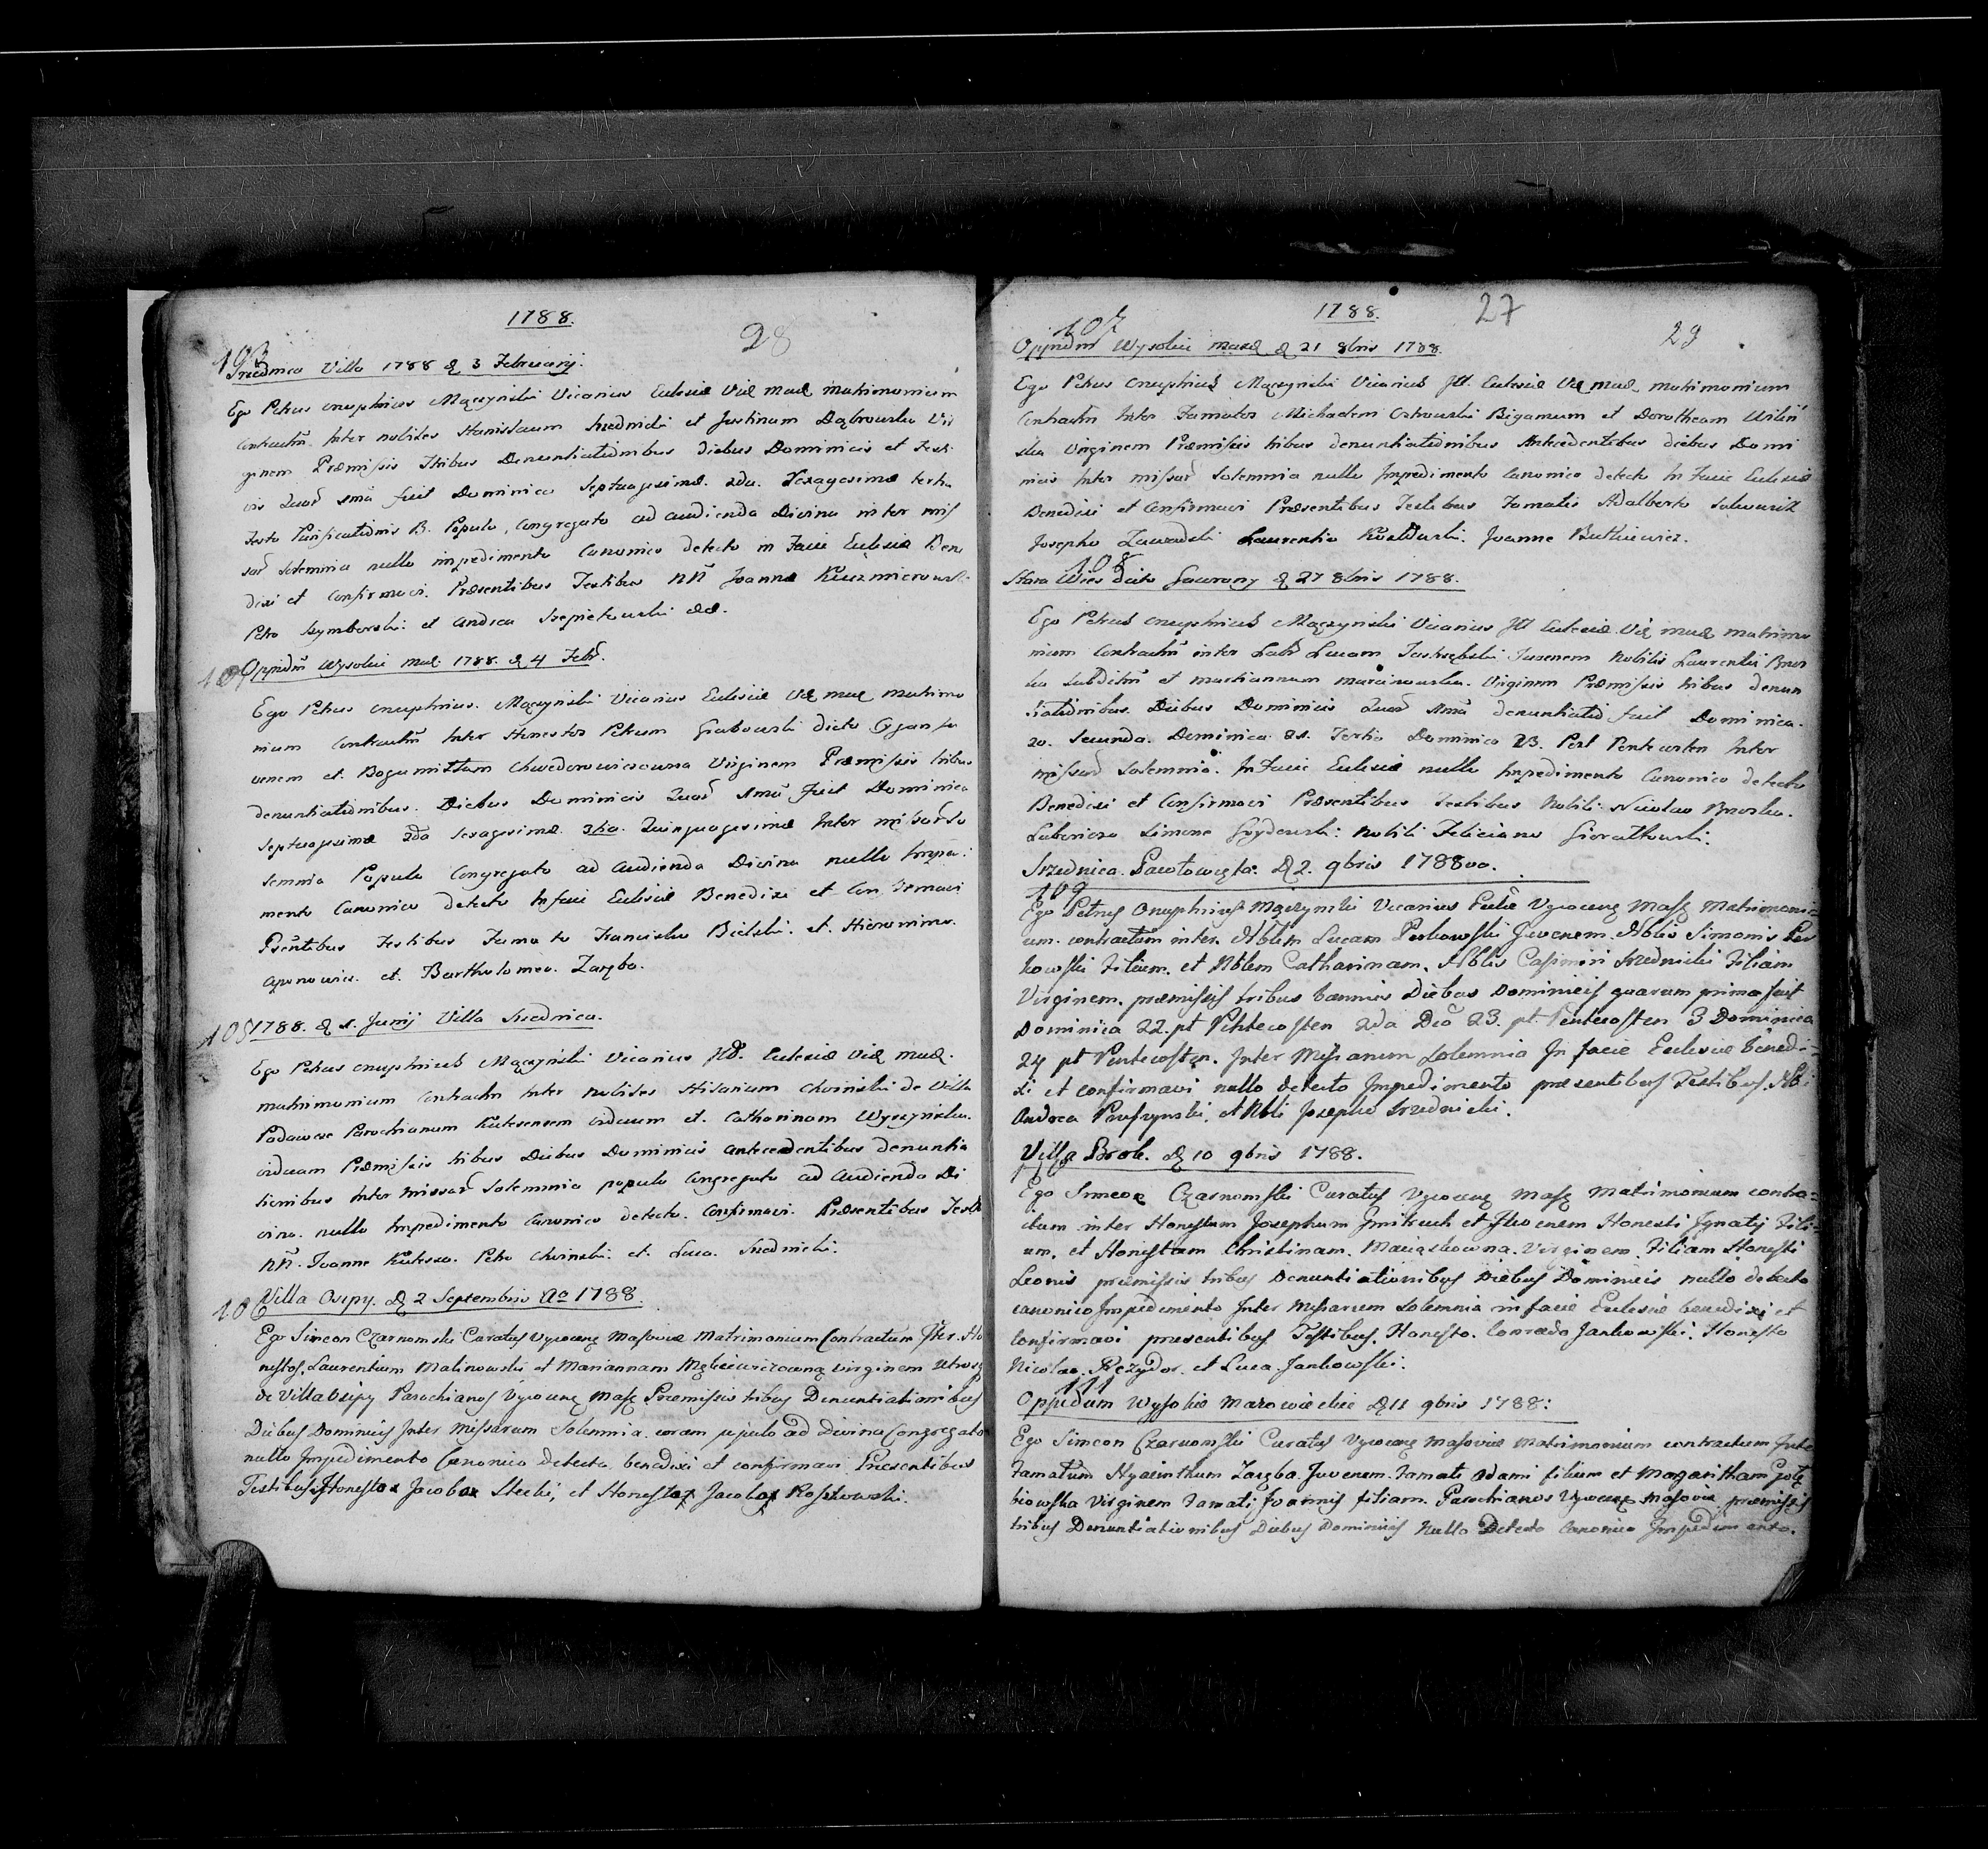 1788.
28
103
Srzednica Villa 1788 d 3 February.
Ego Petrus Onuphrius Mączyński Vicarius Eclesiæ Viæ Maæ Matrimonium
Contractum Inter nobiles Stanislaum Srednicki et Justinam Dąbrowska Vir
ginem Præmissis Tribus Denuntiationibus diebus Dominicis et Festi
vis Quar 1ma fuit Dominica Septuagesimæ. 2da. Sexagesimæ tertia
Festo Purificationis B. Populo, Congregato ad audienda Divina inter miss
sar Solemnia nullo impedimento Canonico detecto in Facie Eclesiæ Bene
dixi et Confirmavi. Præsentibus Testibus NN Joanne
Petro Kymborski: et Andrea Szepietowski
104 Oppidm Wysokie Maz: 1788. d 4 Febr.
Ego Petrus Onuphrius. Mączyński Vicarius Eclesiæ Væ Maæ Matrimo
nium Contractm Inter Honestos Petrum Grabowski dicto Ju
venem et. Bogumillam Chwedorowiczowna Virginem Præmissis tribus
denuntiationibus. Diebus Dominicis Quar 1ma fuit Dominica
Septuagesimæ 2da Sexagesimæ. 3tia. Quinquagesimæ Inter missar So
lemnia Populo Congregato ad audienda Divina nullo Impedi:
mento Canonico detecto In facie Eclesiæ Benedixi et Confirmavi
Psentibus Testibus Famato Francisco Bielski. et. Hieronimo.
et. Bartholomeo. Zaręba.
105 1788. d 1. Junij Villa Srednica.
Ego Petrus Onuphrius Mączyński Vicarius Eclesiæ Viæ Maæ.
matrimonium Contractm Inter Nobiles Hilarium Choinski de Villa
Parochianum Kuleszensem viduum et. Catharinam Wyszyńska.
viduam Præmissis tribus Diebus Dominicis antecedentibus denuntia
tionibus Inter Missar Solemnia populo Congregato ad Audienda Di
vina. nullo Impedimento Canonico detecto. Confirmavi. Præsentibus Testib
NN. Joanne Kulesza. Petro Choinski. et. Luca. Srednicki.
106 Villa Osipy. d 2 Septembris Ao 1788.
Ego Simeon Czarnomski Curatus Vysocensis Masoviæ Matrimonium Contractum Inter. Ho
nestos. Laurentium Malinowski et Mariannam virginem utrosq
de Villa Osipy Parochianos Vysocens Masz Præmissis tribus Denuntiationibus
Diebus Dominicis Inter Missarum Solemnia. coram populo ad Divina Congregato
nullo Impedimento Canonico detecto benedixi et confirmavi Præsentibus
Testibus Honesto Jacobo Stecki, et Honesto Jacobo Koszkowski.
1788.
27
29
107
Oppidm Wysokie Mazæ d 21 8bris 1788.
Ego Petrus Onuphrius Mączyński Vicarius Eclesiæ Væ Maæ. matrimonium
Contractm Inter Famatos Michaelem Ostrowski Bigamum et Dorotheam
ska Virginem Præmissis tribus denuntiationibus Antecedentibus diebus Domi
nicis Inter missar Solemnia nullo Impedimento Canonico detecto In Facie Eclesiæ
Benedixi et Confirmavi Præsentibus Testibus Famatis Adalberto
Josepho Zawadzki Laurentio Joanne Butkiewicz.
108
Stara Wies dicto d 27 8bris 1788.
Ego Petrus Onuphrius Mączyński Vicarius Eclesiæ Viæ Maæ matrimo
nium Contractm inter Lucam Jastrzębski Juvenem Nobilis Laurentii
Subditum et Mariannam Marcinowska. Virginem Præmissis tribus denun
tiationibus. Diebus Dominicis Quar 1ma denuntiatio fuit Dominica.
20. Secunda. Dominica. 21. Tertia Dominica 23. Post Pentecosten Inter
missar Solemnia. In Facie Eclesiæ nullo Impedimento Canonico detecto
Benedixi et Confirmavi Præsentibus Testibus Nobili Nicolao
Laborioso Simone nobili Feliciano
Srzednica. d 2. 9bris 1788oo.
109
Ego Petrus Onuphrius Mączyński Vicarius Vysocens Masz Matrimoni
um. contractum inter. Nblem Lucam Perkowski Juvenem. Nblis Simonis Per
kowski Filium. et Nblem Catharinam. Nblis Casimiri Srzednicki Filiam
Virginem. præmissis tribus bannis Diebus Dominicis quarum prima fuit
Dominica 22. pt Pentecosten 2da Dca 23. pt. Pentecosten 3 Dominica
24 pt Pentecosten. Inter Missarum Solemnia In facie Ecclesiæ benedi
xi et confirmavi nullo detecto Impedimento præsentibus Testibus. Nbi
Andrea et Nbli Josepho Srzednicki.
Villa Brok. d 10 9bris 1788.
110
Ego Simeon Czarnomski Curatus Vysocens Masz Matrimonium contra
ctum inter Honestum Josephum Juvenem Honesti Ignatij Fili
um, et Honestam Christinam. Virginem. Filiam Honesti
Leonis præmissis tribus Denuntiationibus Diebus Dominicis nullo detecto
canonico Impedimento Inter Missarum Solemnia in facie Ecclesiæ benedixi et
Confirmavi presentibus Testibus. Honesto. Conrado Jankowski. Honesto
Nicolao. et Luca. Jankowski.
111
Oppidum Wysokie Mazowieckie d 11 9bris 1788:
Ego Simeon Czarnomski Curatus Vysocens Masoviæ Matrimonium contractum Inte
Famatum Hyacinthum Zaręba. Juvenem. Famati Adami filium et Margaritham Gołę
biowska Virginem Famati Joannis filiam. Parochianos Vysocens Masoviæ præmissis
tribus Denuntiationibus Diebus Dominicis Nullo Detecto Canonico Impedimento.